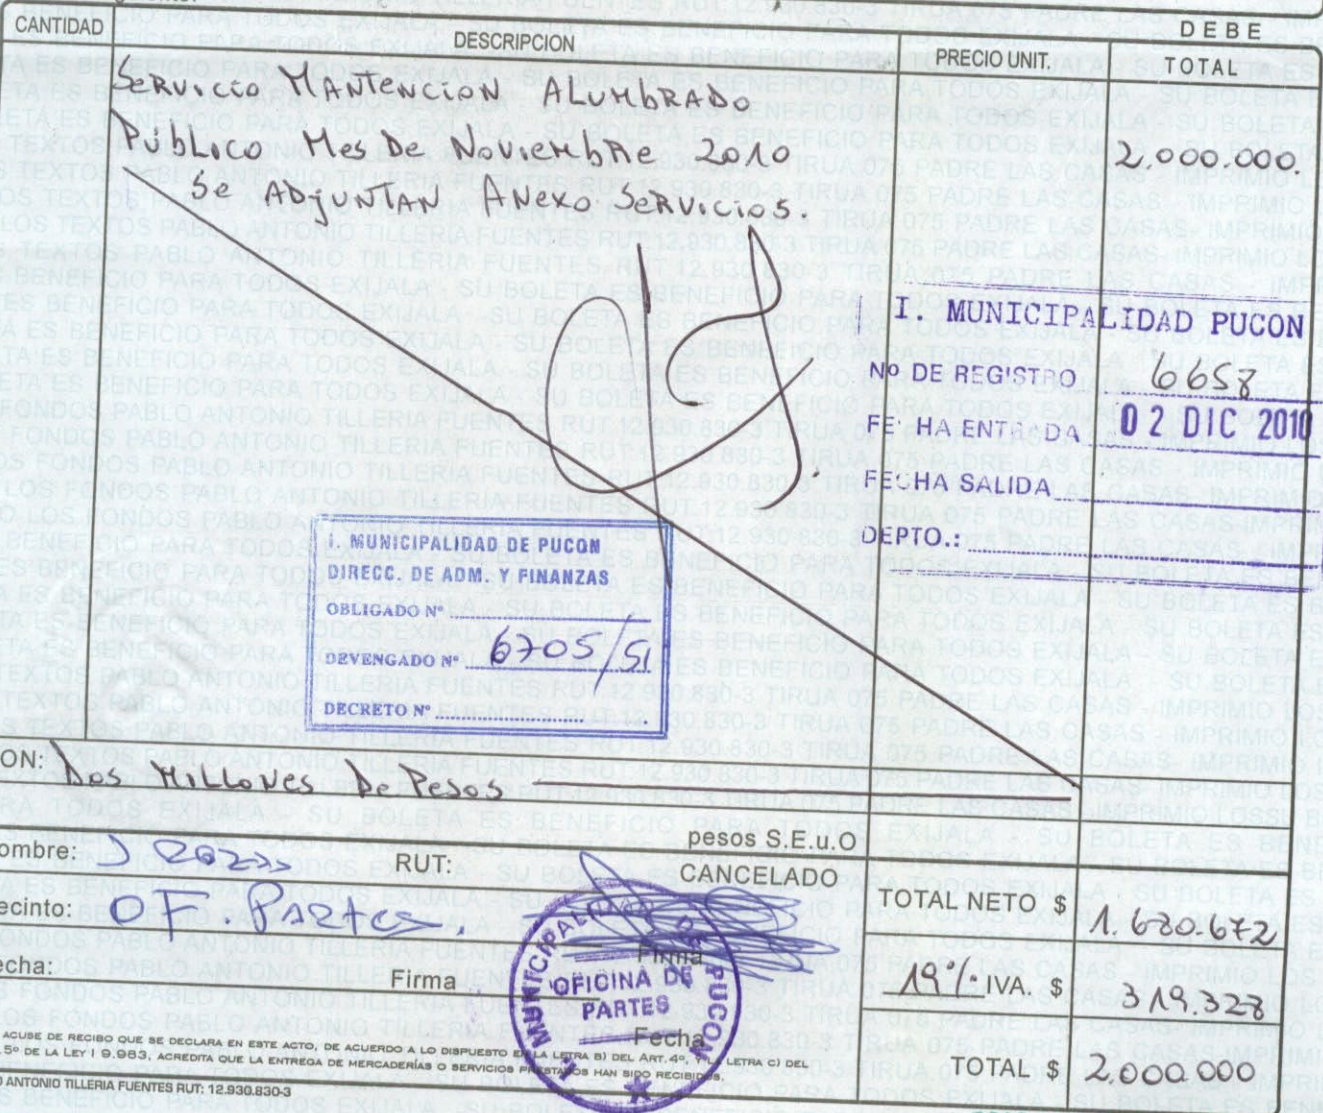 CANTIDAD DESCRIPCION PRECIO UNIT. DEBE
TOTAL
SERVICIO MANTENCION ALUMBRADO
Público Mes De Noviembre 2010 2.000.000.
Se ADJUNTAN Anexo Servicios.
I. MUNICIPALIDAD PUCON
Nº DE REGISTRO 6658
FECHA ENTRADA 02 DIC 2010
FECHA SALIDA
DEPTO.:
I. MUNICIPALIDAD DE PUCON
DIRECC. DE ADM. Y FINANZAS
OBLIGADO Nº
DEVENGADO Nº 6705/51
DECRETO Nº
ON: Dos Millones De Pesos
pesos S.E.u.O
ombre: RUT: CANCELADO
TOTAL NETO $ 1.680.672
ecinto: OF. Partes
Firma
echa: Firma
19% IVA. $ 319.328
MUNICIPALIDAD DE PUCON
OFICINA DE
PARTES
Fecha
TOTAL $ 2.000.000
ACUSE DE RECIBO QUE SE DECLARA EN ESTE ACTO, DE ACUERDO A LO DISPUESTO EN LA LETRA B) DEL ART. 4º, Y LA LETRA C) DEL
.5º DE LA LEY 19.983, ACREDITA QUE LA ENTREGA DE MERCADERÍAS O SERVICIOS PRESTADOS HAN SIDO RECIBIDOS.
O ANTONIO TILLERIA FUENTES RUT: 12.930.830-3